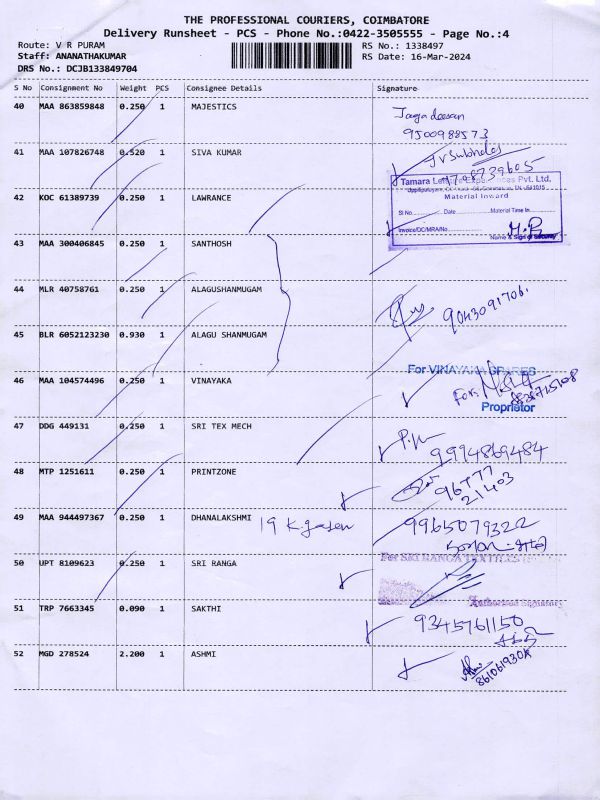 THE PROFESSIONAL COURIERS, COIMBATORE
Delivery Runsheet - PCS - Phone No.:0422-3505555 - Page No.:4
Route: V R PURAM
RS No.: 1338497
Staff: ANANATHAKUMAR
RS Date: 16-Mar-2024
DRS No.: DCJB133849704
S No Consignment No Weight PCS Consignee Details Signature
40 MAA 863859848 0.250 1 MAJESTICS
Jagadeesan
9500988573
41 MAA 107826748 0.520 1 SIVA KUMAR
9708739605
42 KOC 61389739 0.250 1 LAWRANCE
Tamara Pvt. Ltd.
Material Inward
Sl No. Date Material Time In
Invoice/DC/MRA/No.
Name & Sign of Security
43 MAA 300406845 0.250 1 SANTHOSH
44 MLR 40758761 0.250 1 ALAGUSHANMUGAM
9043091706.
45 BLR 6052123230 0.930 1 ALAGU SHANMUGAM
46 MAA 104574496 0.250 1 VINAYAKA
For VINAYAKA SPARES
For
Proprietor
47 DDG 449131 0.250 1 SRI TEX MECH
9994869484
48 MTP 1251611 0.250 1 PRINTZONE
96777
21403
49 MAA 944497367 0.250 1 DHANALAKSHMI
9965079322
50 UPT 8109623 0.250 1 SRI RANGA
For SRI RANGA TEXTILES
Authorised Signatory
51 TRP 7663345 0.090 1 SAKTHI
9345761150
52 MGD 278524 2.200 1 ASHMI